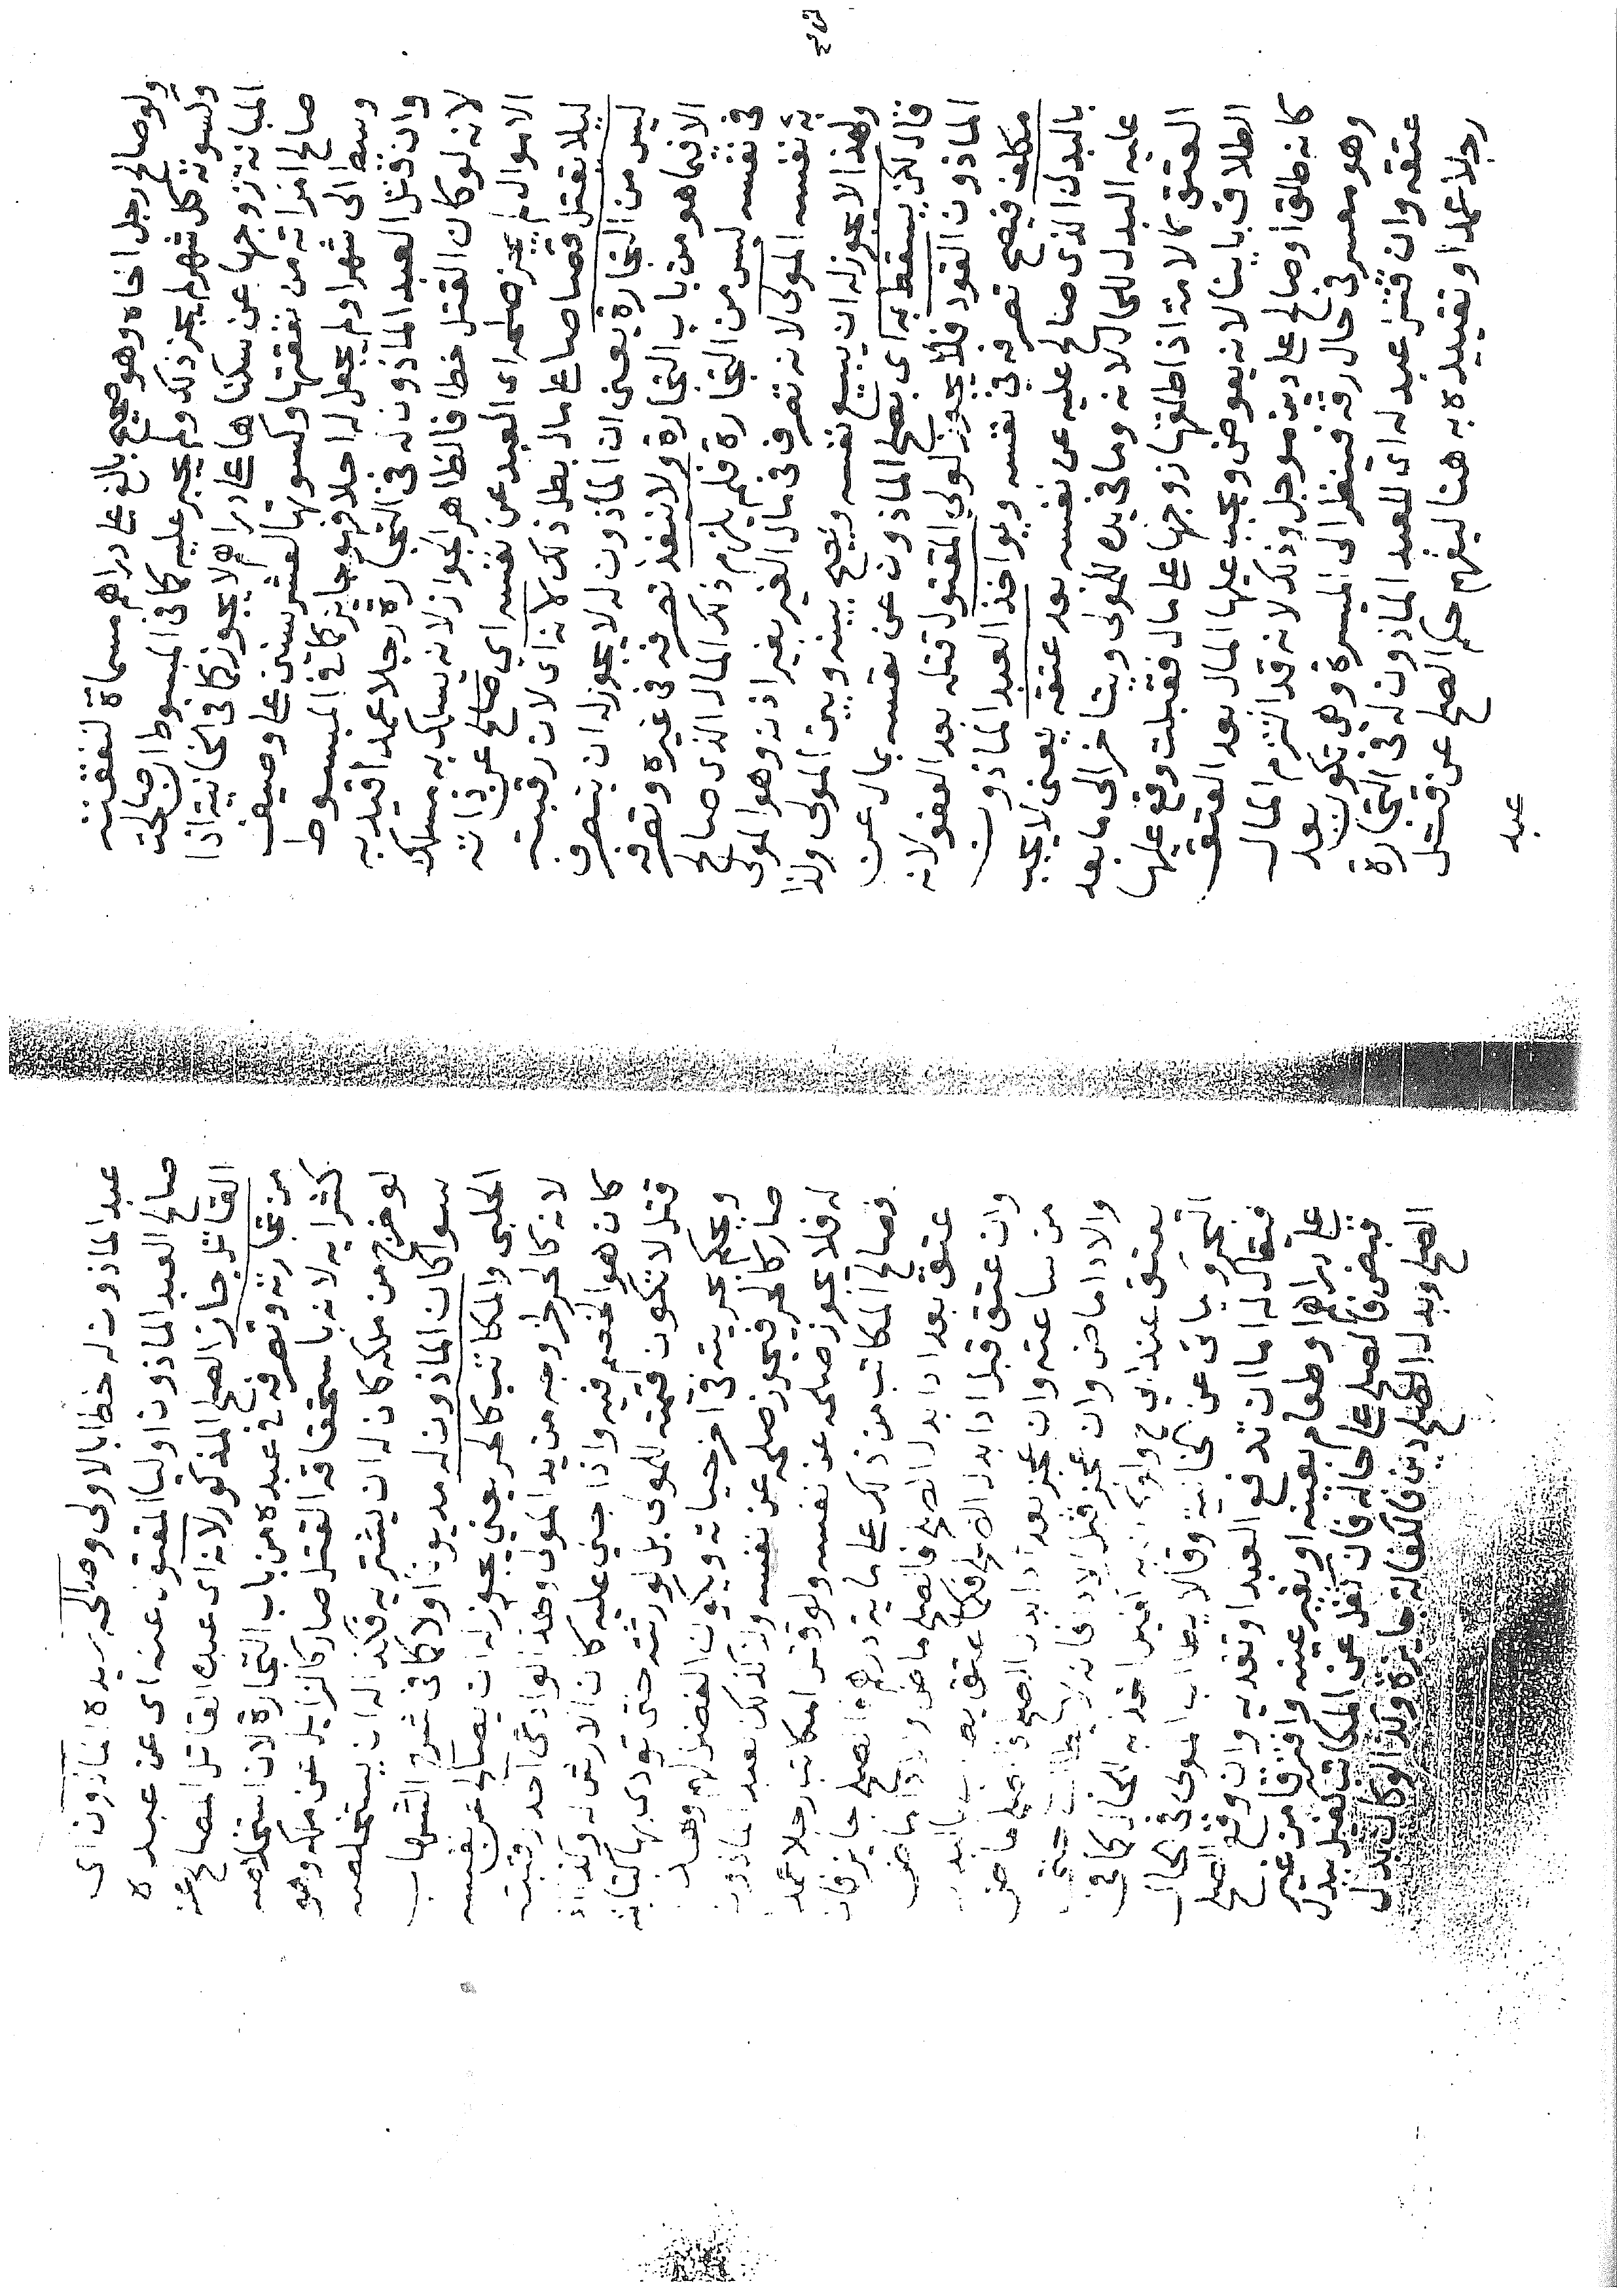 ولو صالح رجل اخاه وهو صحيح بالغ على دراهم مسماة لنفقته
ولسوته كل شهر لم يجز ذلك ولم يجبر عليه كما فى المبسوط ان صالحت
المبانة زوجها عن سكناها على دراهم لا يجوز كما فى الخانية اذا
صالح امراته من نفقتها وكسوتها لعشر سنين على وصيف
وسط الى شهر او لم يجعل له اجلا فهو جايز كما فى المبسوط
وان قتل العبد الماذون له فى التجارة رجلا عمدا قيد به
لانه لو كان القتل خطا فالظاهر الجواز لانه يسلك به مسلك
الاموال لم يجز صلحه اى العبد عن نفسه اي صالح عن ذاته
ليلا يقتل قصاصا على مال بطل ذلك لانه اى لان رقبته
ليس من التجارة يعنى ان الماذون له لا يجوز له ان يتصرف
الا فيما هو من باب التجارة ولا ينفذ تصرفه فى غيره وتصرفه
فى نفسه ليس من التجارة فلم يلزم ذلك المال الذى صالح
به نفسه المولى لانه تصرف فى مال الغير بغير اذنه وهو المولى
ولهذا لا يجوز له ان يبيع نفسه ويصح بينه وبين المولى ولذا
قال لكن يسقط به اى بصلح الماذون عن نفسه بمال عن
الماذون القود فلا يجوز لولي المقتول قتله بعد العفو لانه
مكلف فيصح تصرفه في نفسه ويواخذ العبد الماذون
بالبدل الذى صالح عليه عن نفسه بعد عتقه يعنى لا يجب
عليه البدل للحال لانه وما فى يده للمولى ويتاخر الى ما بعد
العتق كالامة اذا طلقها زوجها على مال فقبلت وقع عليها
الطلاق باينا لانه بعوض ويجب عليها المال بعد العتق
كانه طلق او صالح على دين موجل وذلك لانه قد التزم المال
وهو معسر فى حال رقه فينظر الى الميسرة وهى تكون بعد
عتقه وان قتل عبد له اى للعبد الماذون له فى التجارة
رجلا عمدا وتقييده به هنا ليفهم حكم الصلح عن قتل
عبد
عبد الماذون له خطا بالاولى وصالحه سيده الماذون اى
صالح العبد الماذون اوليا المقتول عنه اى عن عبده
القاتل جاز الصلح المذكور لانه اى عبده القاتل المصالح عنه
من تجارته وتصرفه فى عبده من باب التجارة لان استخلاصه
كشرايه لانه باستحقاقه القتل صار كالزايل عن ملكه وهو
لو خرج من ملكه كان له ان يشتريه فكذا له ان يستخلصه
سوا كان الماذون له مديونا اولا كما فى شرح الشهاب
الحلبى والمكاتب كالحر يعني يجوز له ان يصالح عن نفسه
لانه كالحر لخروجه من يد المولى وهذا لو ادعى احد رقبته
كان هو الخصم فيه واذا جنى عليه كان الارش له وكذا اذا
قتل لا تكون قيمته للمولى بل لورثته حتى تودى بها كتابته
ويحكم بحريته فى اخر حياته ويكون الفضل لهم وهـ
صار كالحر فيجوز صلحه عن نفسه ولا كذلك العبد الماذون
له فلا يجوز صلحه عن نفسه ولو قتل المكاتب رجلا عمدا
فصالح المكاتب من ذلك على ماية درهم فالصلح جايز فان
عتق بعد ادا بدل الصلح فالصلح ماض
وان عتق قبل ادا بدل الصلح فكما عتق
من ساعته وان عجز بعد ادا بدل الصلح فالصلح ماض
والادا ماض وان عجز قبل الادا فانه لا يطالب حتى
يعتق عند ابي ح وقالا يطالب المولى فى الحال
على دراهم او طعام بعينه او بغير عينه وافترقا من غير
قبض فالصلح على حاله فان كفل عن المكاتب كفيل ببدل
الصلح وبدل الصلح دين فالكفالة جايزة وكذا لو كان بدل